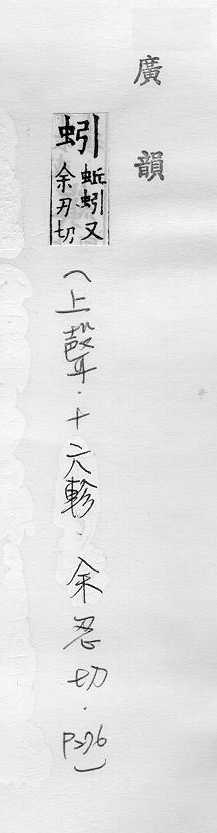 廣韻
蚓蚯蚓又余刃切
(上聲.十六軫.余忍切.P276)